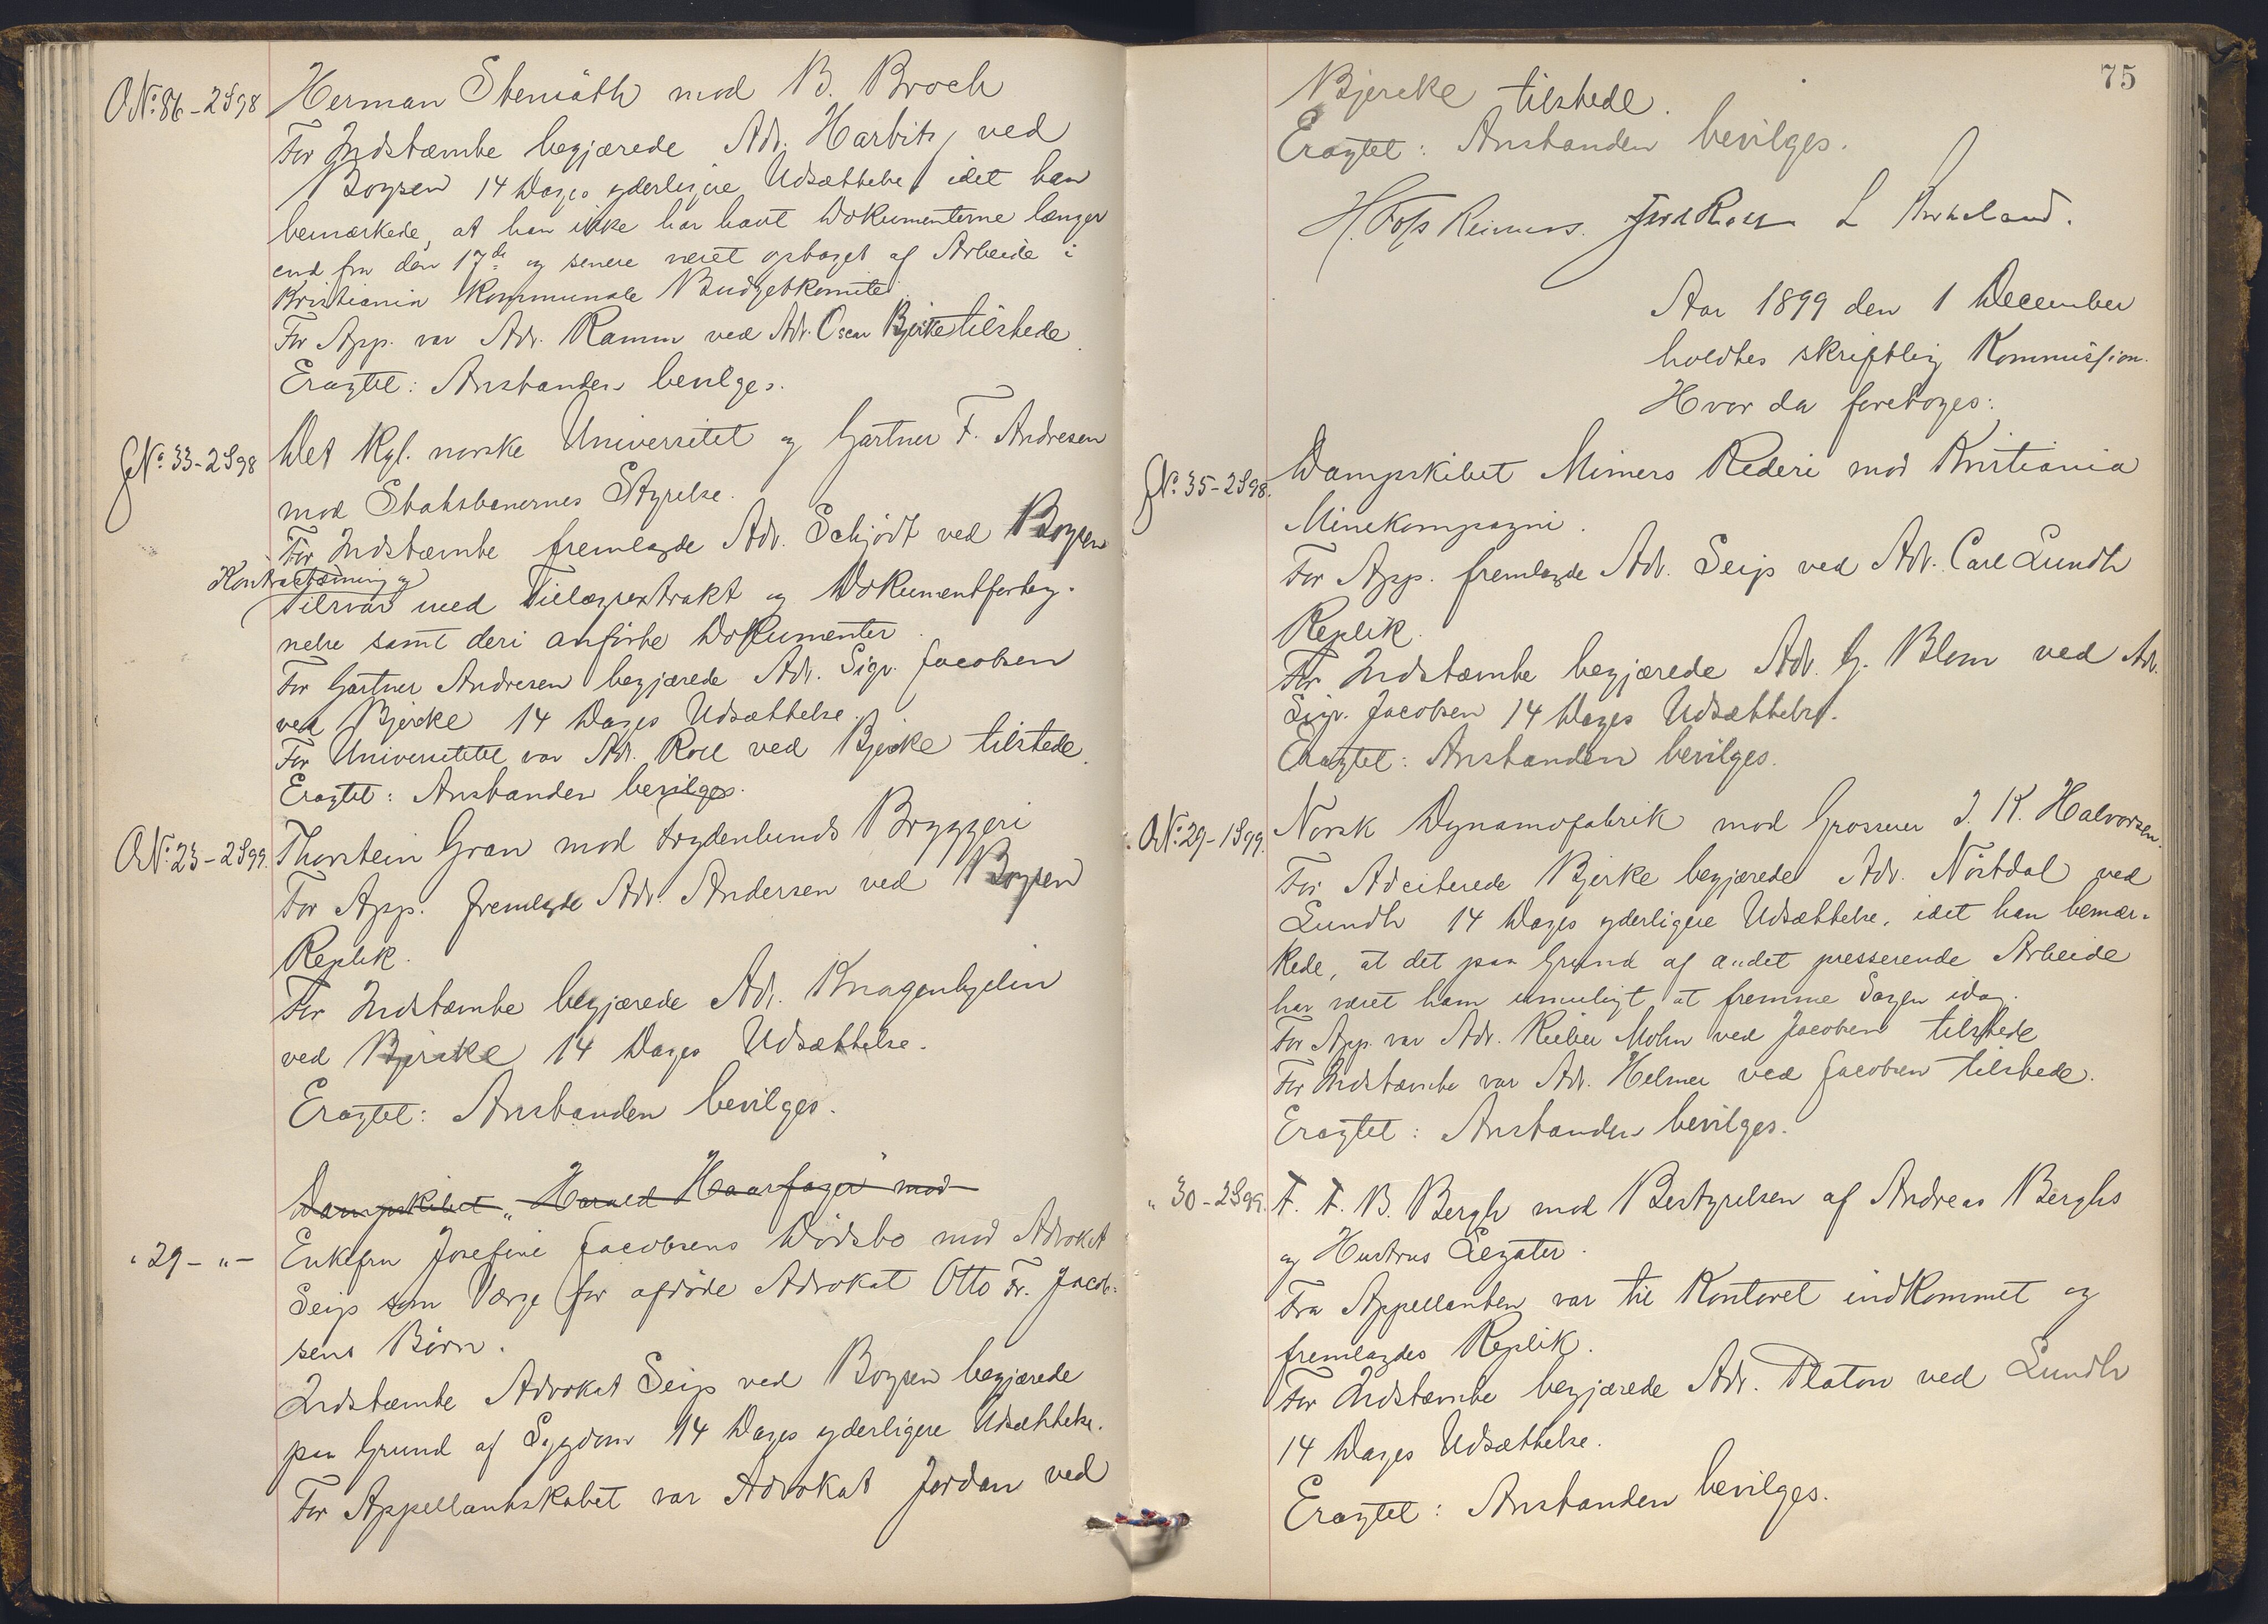 O№: 86-2S98 Herman Stenräth mod B. Broch
For Indstævnte begjærede Adv. Harbitz ved
Boysen 14 Dages yderligere Udsættelse idet han
bemærkede, at han ikke har havt Dokumenterne længer
end fra den 17de og senere været optaget af Arbeide i
Kristiania Kommunale Budgetkomite.
For App. var Adv. Ramm ved Adv. Oscar Bjerke tilstede.
Eragtet: Anstanden bevilges.
G№: 33-2S98 Det Kgl. norske Universitet og Gartner F. Andresen
mod Statsbanernes Styrelse.
For Indstævnte fremlagde Adv. Schjödt ved Boysen
Kontrastævning og
Tilsvar med Tillægsextrakt og Dokumentforteg-
nelse samt deri anførte Dokumenter.
For Gartner Andresen begjærede Adv. Sigv. Jacobsen
ved Bjercke 14 Dages Udsættelse.
For Universitetet var Adv. Roll ved Bjercke tilstede.
Eragtet: Anstanden bevilges.
O№: 23-2S99. Thorstein Gran mod Frydenlunds Bryggeri
For App. fremlagde Adv. Andersen ved Boysen
Replik.
For Indstævnte begjærede Adv. Knagenhjelm
ved Bjercke 14 Dages Udsættelse.
Eragtet: Anstanden bevilges.
Dampskibet „Harald Haarfager" mod
" 29 - " - Enkefru Josefine Jacobsens Dødsbo mod Advokat
Seip som Værge for afdøde Advokat Otto Fr. Jacob-
sens Børn.
Indstævnte Advokat Seip ved Boysen begjærede
paa Grund af Sygdom 14 Dages yderligere Udsættelse.
For Appellantskabet var Advokat Jordan ved
75
Bjercke tilstede.
Eragtet: Anstanden bevilges.
H. Foss Reimers. L
Aar 1899 den 1 December
holdtes skriftlig Kommission.
Hvor da foretoges:
G№: 35-2S98. Dampskibet Mimers Rederi mod Kristiania
Minekompagni.
For App. fremlagde Adv. Seip ved Adv. Carl Lundh
Replik.
For Indstævnte begjærede Adv. G. Blom ved Adv.
Sigv. Jacobsen 14 Dages Udsættelse.
Eragtet: Anstanden bevilges.
O№: 29-1S99. Norsk Dynamofabrik mod Grosserer J. K. Halvorsen.
For Adciterede Bjerke begjærede Adv. Nöstdal ved
Lundh 14 Dages yderligere Udsættelse, idet han bemær-
kede, at det paa Grund af andet presserende Arbeide
har været ham umuligt at fremme Sagen idag.
For App. var Adv. Rieber Mohn ved Jacobsen tilstede
For Indstævnte var Adv. Helmer ved Jacobsen tilstede.
Eragtet: Anstanden bevilges.
" 30-2S99. F. F. B. Bergh mod Bestyrelsen af Andreas Berghs
og Hustrus Legater.
Fra Appellanten var til Kontoret indkommet og
fremlagdes Replik.
For Indstævnte begjærede Adv. Platou ved Lundh
14 Dages Udsættelse.
Eragtet: Anstanden bevilges.